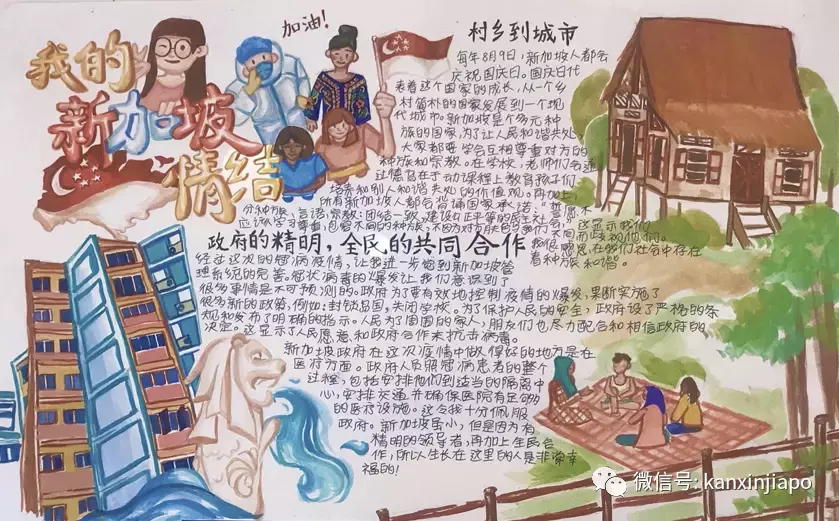 我的
新加坡
情结
加油！
村乡到城市
每年8月9日，新加坡人都会
庆祝国庆日。国庆日代
表着这个国家的成长，从一个乡
村简朴的国家发展到一个现
代城市。新加坡是个多元种
族的国家，为了让人民和谐共处，
大家都要学会互相尊重对方的
种族和宗教。在学校，老师们会通
过德育在于动课程上教育孩子们
培养和别人和谐共处的价值观。再加上，
所有新加坡人都会背诵国家承诺。
分种族、言语、宗教；团结一致，建设公正平等的民主社会
政府的精明，全民的共同合作
经过这次的冠病疫情，让我进一步饱到新加坡管
理系统的完善。冠状病毒的爆发让我们意识到了
很多事情是不可预测的。政府为了要有效地控制疫情的爆发，果断实施了
很多新的政策，例如：封锁岛国，关闭学校。为了保护人民的安全，政府设了严格的条
规和发布了明确的指示。人民为了周围的家人，朋友们也尽力配合和相信政府的
决定。这显示了人民愿意和政府合作来抗击病毒。
新加坡政府在这次疫情中做得好的地方是在
医疗方面。政府人员照冠病患者的整个
过程，包括安排他们到适当的隔离中
心，安排交通并确保医院有足够
的医疗设施。这令我十分佩服
政府。新加坡虽小，但是因为有
精明的领导者，再加上全民合
作，所以生长在这里的人是非常幸
福的！
微信号：kanxinjiapo